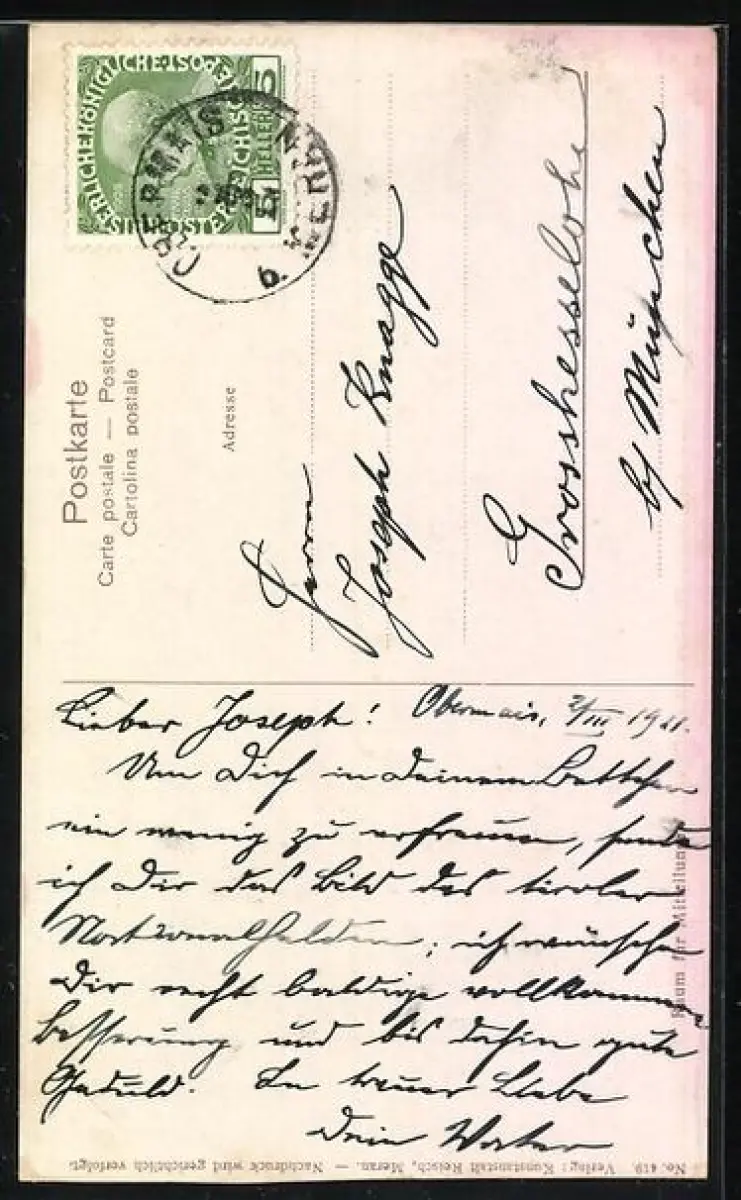 KAISERLICHE KÖNIGLICHE ÖSTERREICHISCHE POST
5 HELLER 5
OBERMAIS
MERAN
Postkarte
Carte postale — Postcard
Cartolina postale
Adresse
Herrn
Joseph Knagge
Grosshesselohe
by München
Lieber Joseph! Obermais, 2/III 1911.
Um Dich in Deinem Bettchen
ein wenig zu erfreuen, sende
ich Dir das Bild des tiroler
Nationalhelden; ich wünsche
Dir recht baldige vollkommene
Besserung und bis dahin gute
Geduld. In treuer Liebe
Dein Vater
Raum für Mitteilung
No. 419. Verlag: Kunstanstalt Reisch, Meran. — Nachdruck wird gerichtlich verfolgt.